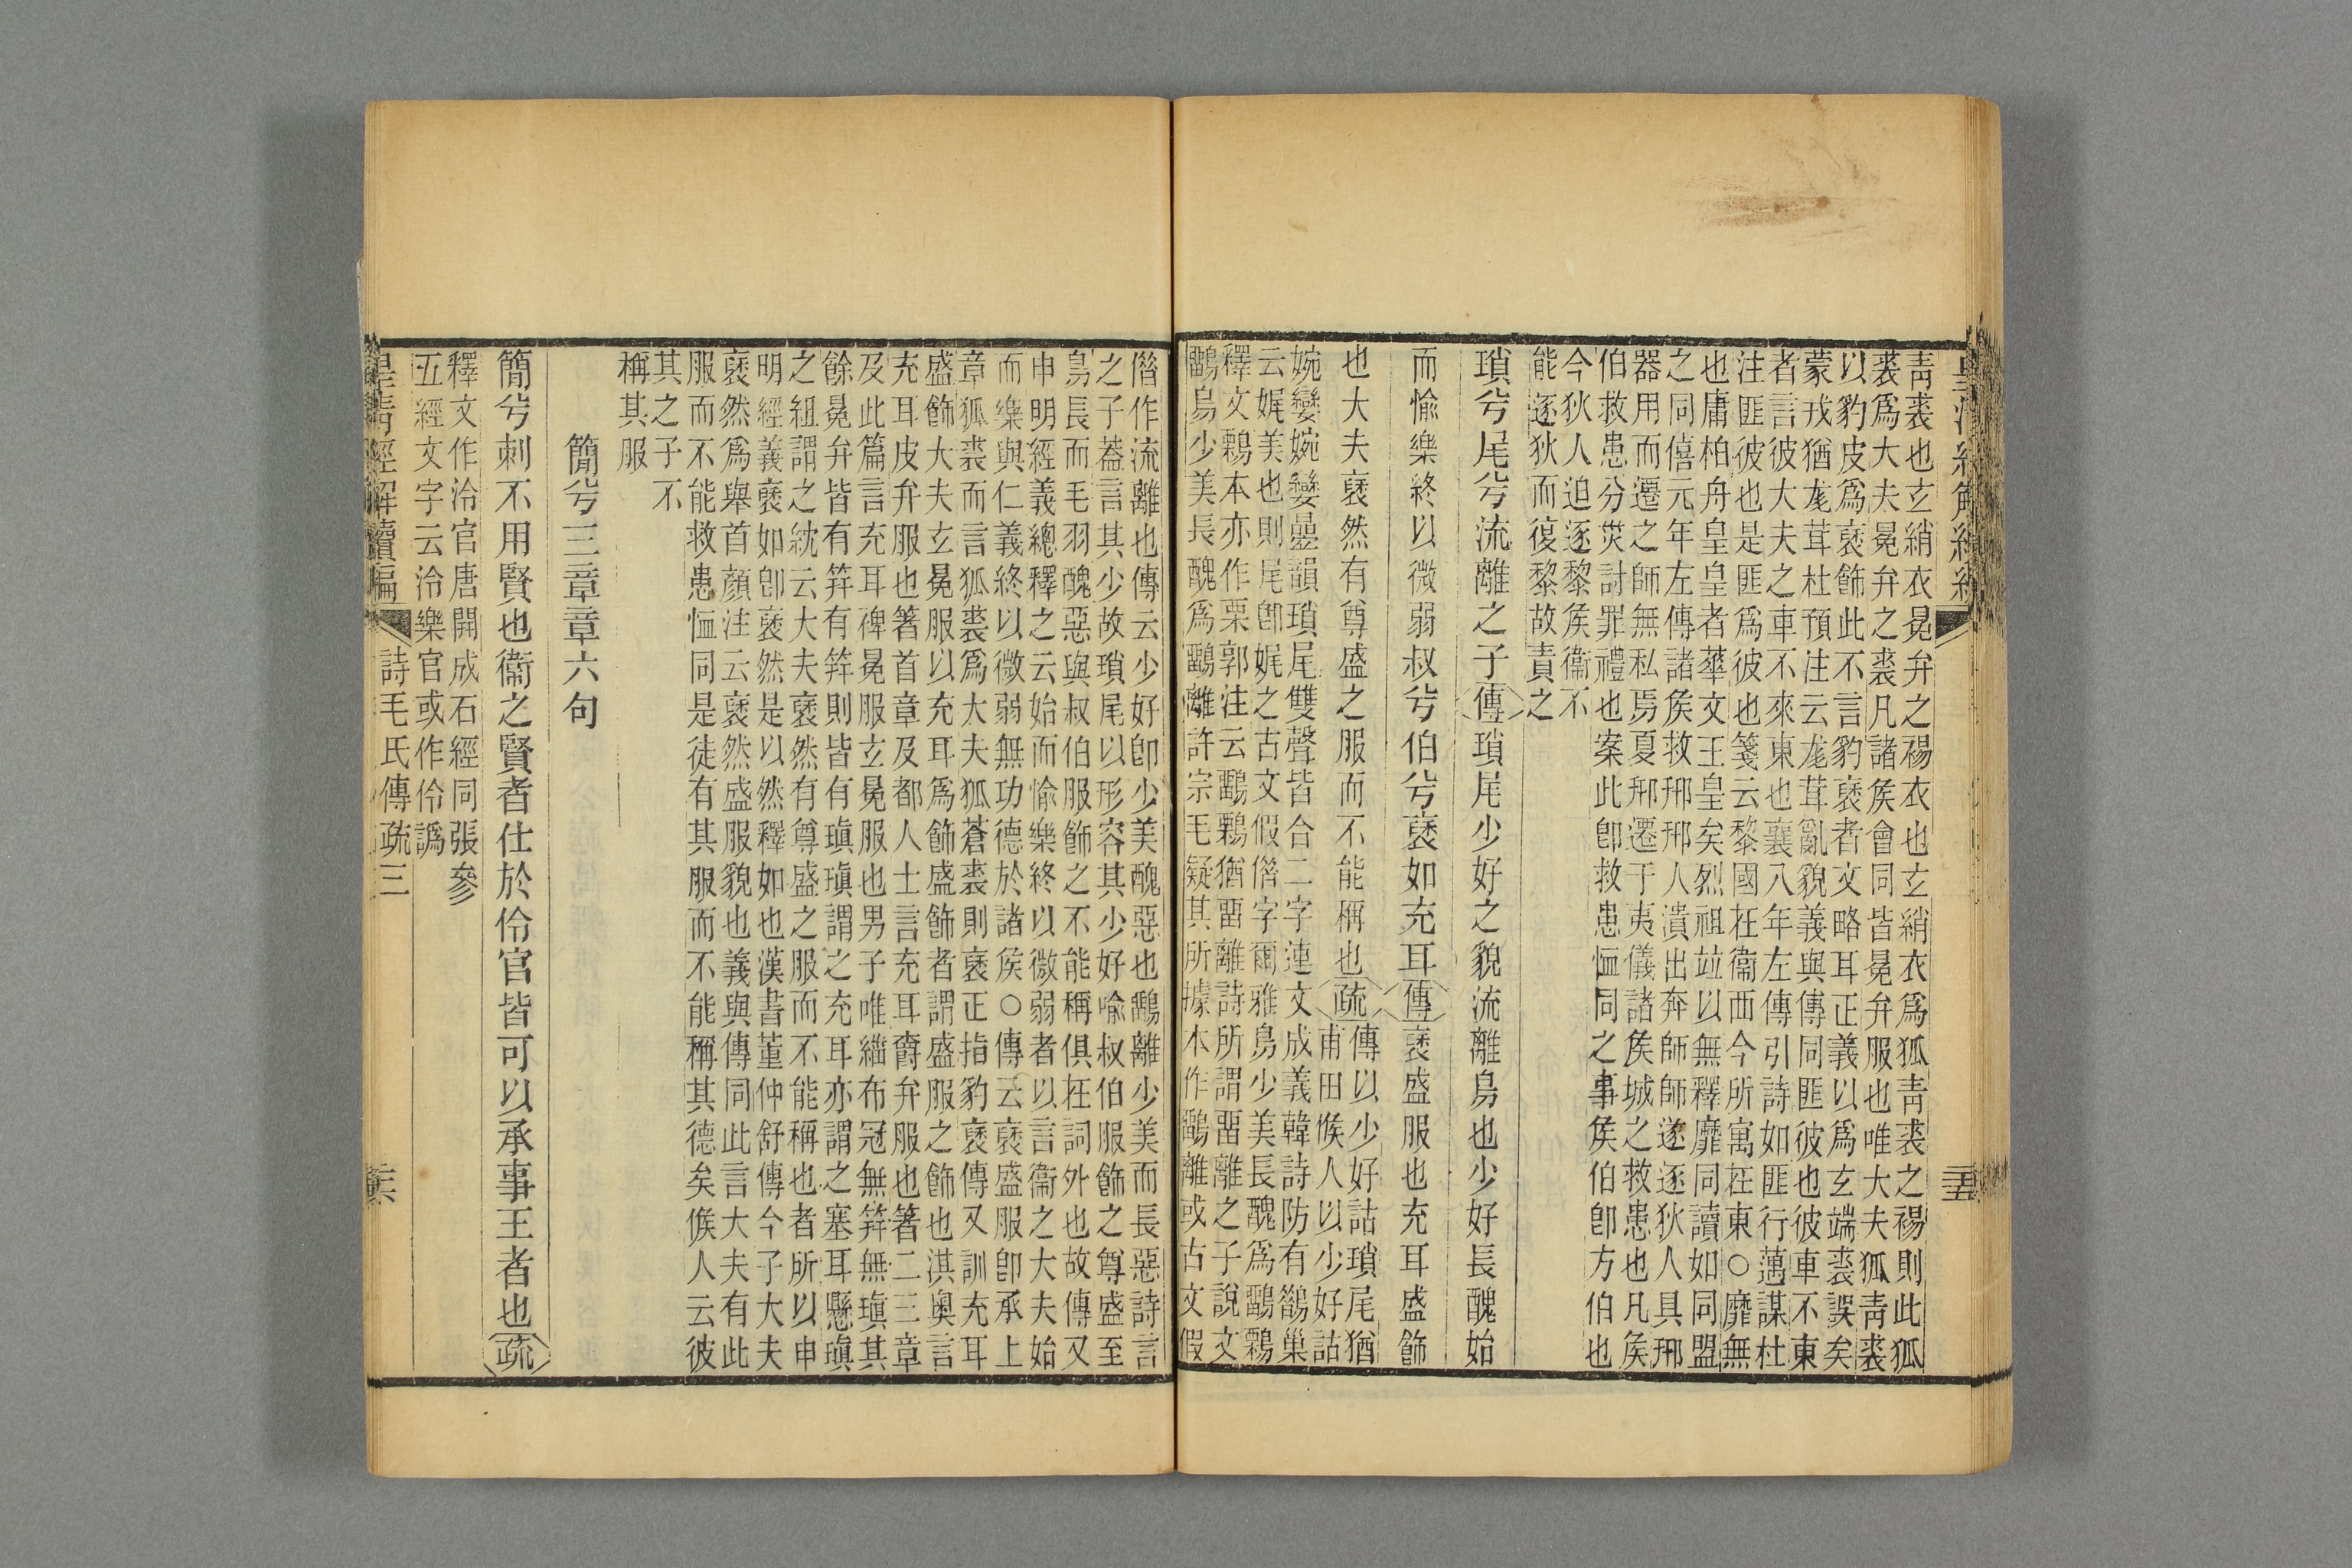 皇清經解續編
卄五
靑裘也玄綃衣冕弁之裼衣也玄綃衣爲狐靑裘之裼則此狐
裘爲大夫冕弁之裘凡諸矦會同皆冕弁服也唯大夫狐靑裘
以豹皮爲褎飾此不言豹褎者文略耳正義以爲玄端裘誤矣
蒙戎猶尨茸杜預注云尨茸亂貌義與傳同匪彼也彼車不東
者言彼大夫之車不來東也襄八年左傳引詩如匪行邁謀杜
注匪彼也是匪爲彼也箋云黎國在衞西今所寓在東○靡無
也庸柏舟皇皇者華文王皇矣烈祖竝以無釋靡同讀如同盟
之同僖元年左傳諸矦救邢邢人潰出奔師師遂逐狄人具邢
器用而遷之師無私焉夏邢遷于夷儀諸矦城之救患也凡矦
伯救患分災討罪禮也案此卽救患恤同之事矦伯卽方伯也
今狄人迫逐黎矦衞不
能逐狄而復黎故責之
瑣兮尾兮流離之子傳瑣尾少好之貌流離鳥也少好長醜始
而愉樂終以微弱叔兮伯兮褎如充耳傳褎盛服也充耳盛飾
也大夫褎然有尊盛之服而不能稱也疏
傳以少好詁瑣尾猶
甫田候人以少好詁
婉孌婉孌曡韻瑣尾雙聲皆合二字連文成義韓詩防有鷊巢
云娓美也則尾卽娓之古文假僭字爾雅鳥少美長醜爲鶹鷅
釋文鷅本亦作栗郭注云鶹鷅猶畱離詩所謂畱離之子說文
鶹鳥少美長醜爲鶹離許宗毛疑其所據本作鶹離或古文假
僭作流離也傳云少好卽少美醜惡也鶹離少美而長惡詩言
之子葢言其少故瑣尾以形容其少好喻叔伯服飾之尊盛至
鳥長而毛羽醜惡與叔伯服飾之不能稱俱在詞外也故傳又
申明經義總釋之云始而愉樂終以微弱者以言衞之大夫始
而樂與仁義終以微弱無功德於諸矦○傳云褎盛服卽承上
章狐裘而言狐裘爲大夫狐蒼裘則褎正指豹褎傳又訓充耳
盛飾大夫玄冕服以充耳爲飾盛飾者謂盛服之飾也淇奧言
充耳皮弁服也箸首章及都人士言充耳爵弁服也箸二三章
及此篇言充耳裨冕服玄冕服也男子唯緇布冠無笄無瑱其
餘冕弁皆有笄有笄則皆有瑱瑱謂之充耳亦謂之塞耳懸瑱
之組謂之紞云大夫褎然有尊盛之服而不能稱也者所以申
明經義褎如卽褎然是以然釋如也漢書董仲舒傳今子大夫
褎然爲舉首顏注云褎然盛服貌也義與傳同此言大夫有此
服而不能救患恤同是徒有其服而不能稱其德矣候人云彼
其之子不
稱其服
簡兮三章章六句
簡兮刺不用賢也衞之賢者仕於伶官皆可以承事王者也疏
釋文作泠官唐開成石經同張參
五經文字云泠樂官或作伶譌
皇淸經解續編
詩毛氏傳疏三
卄六